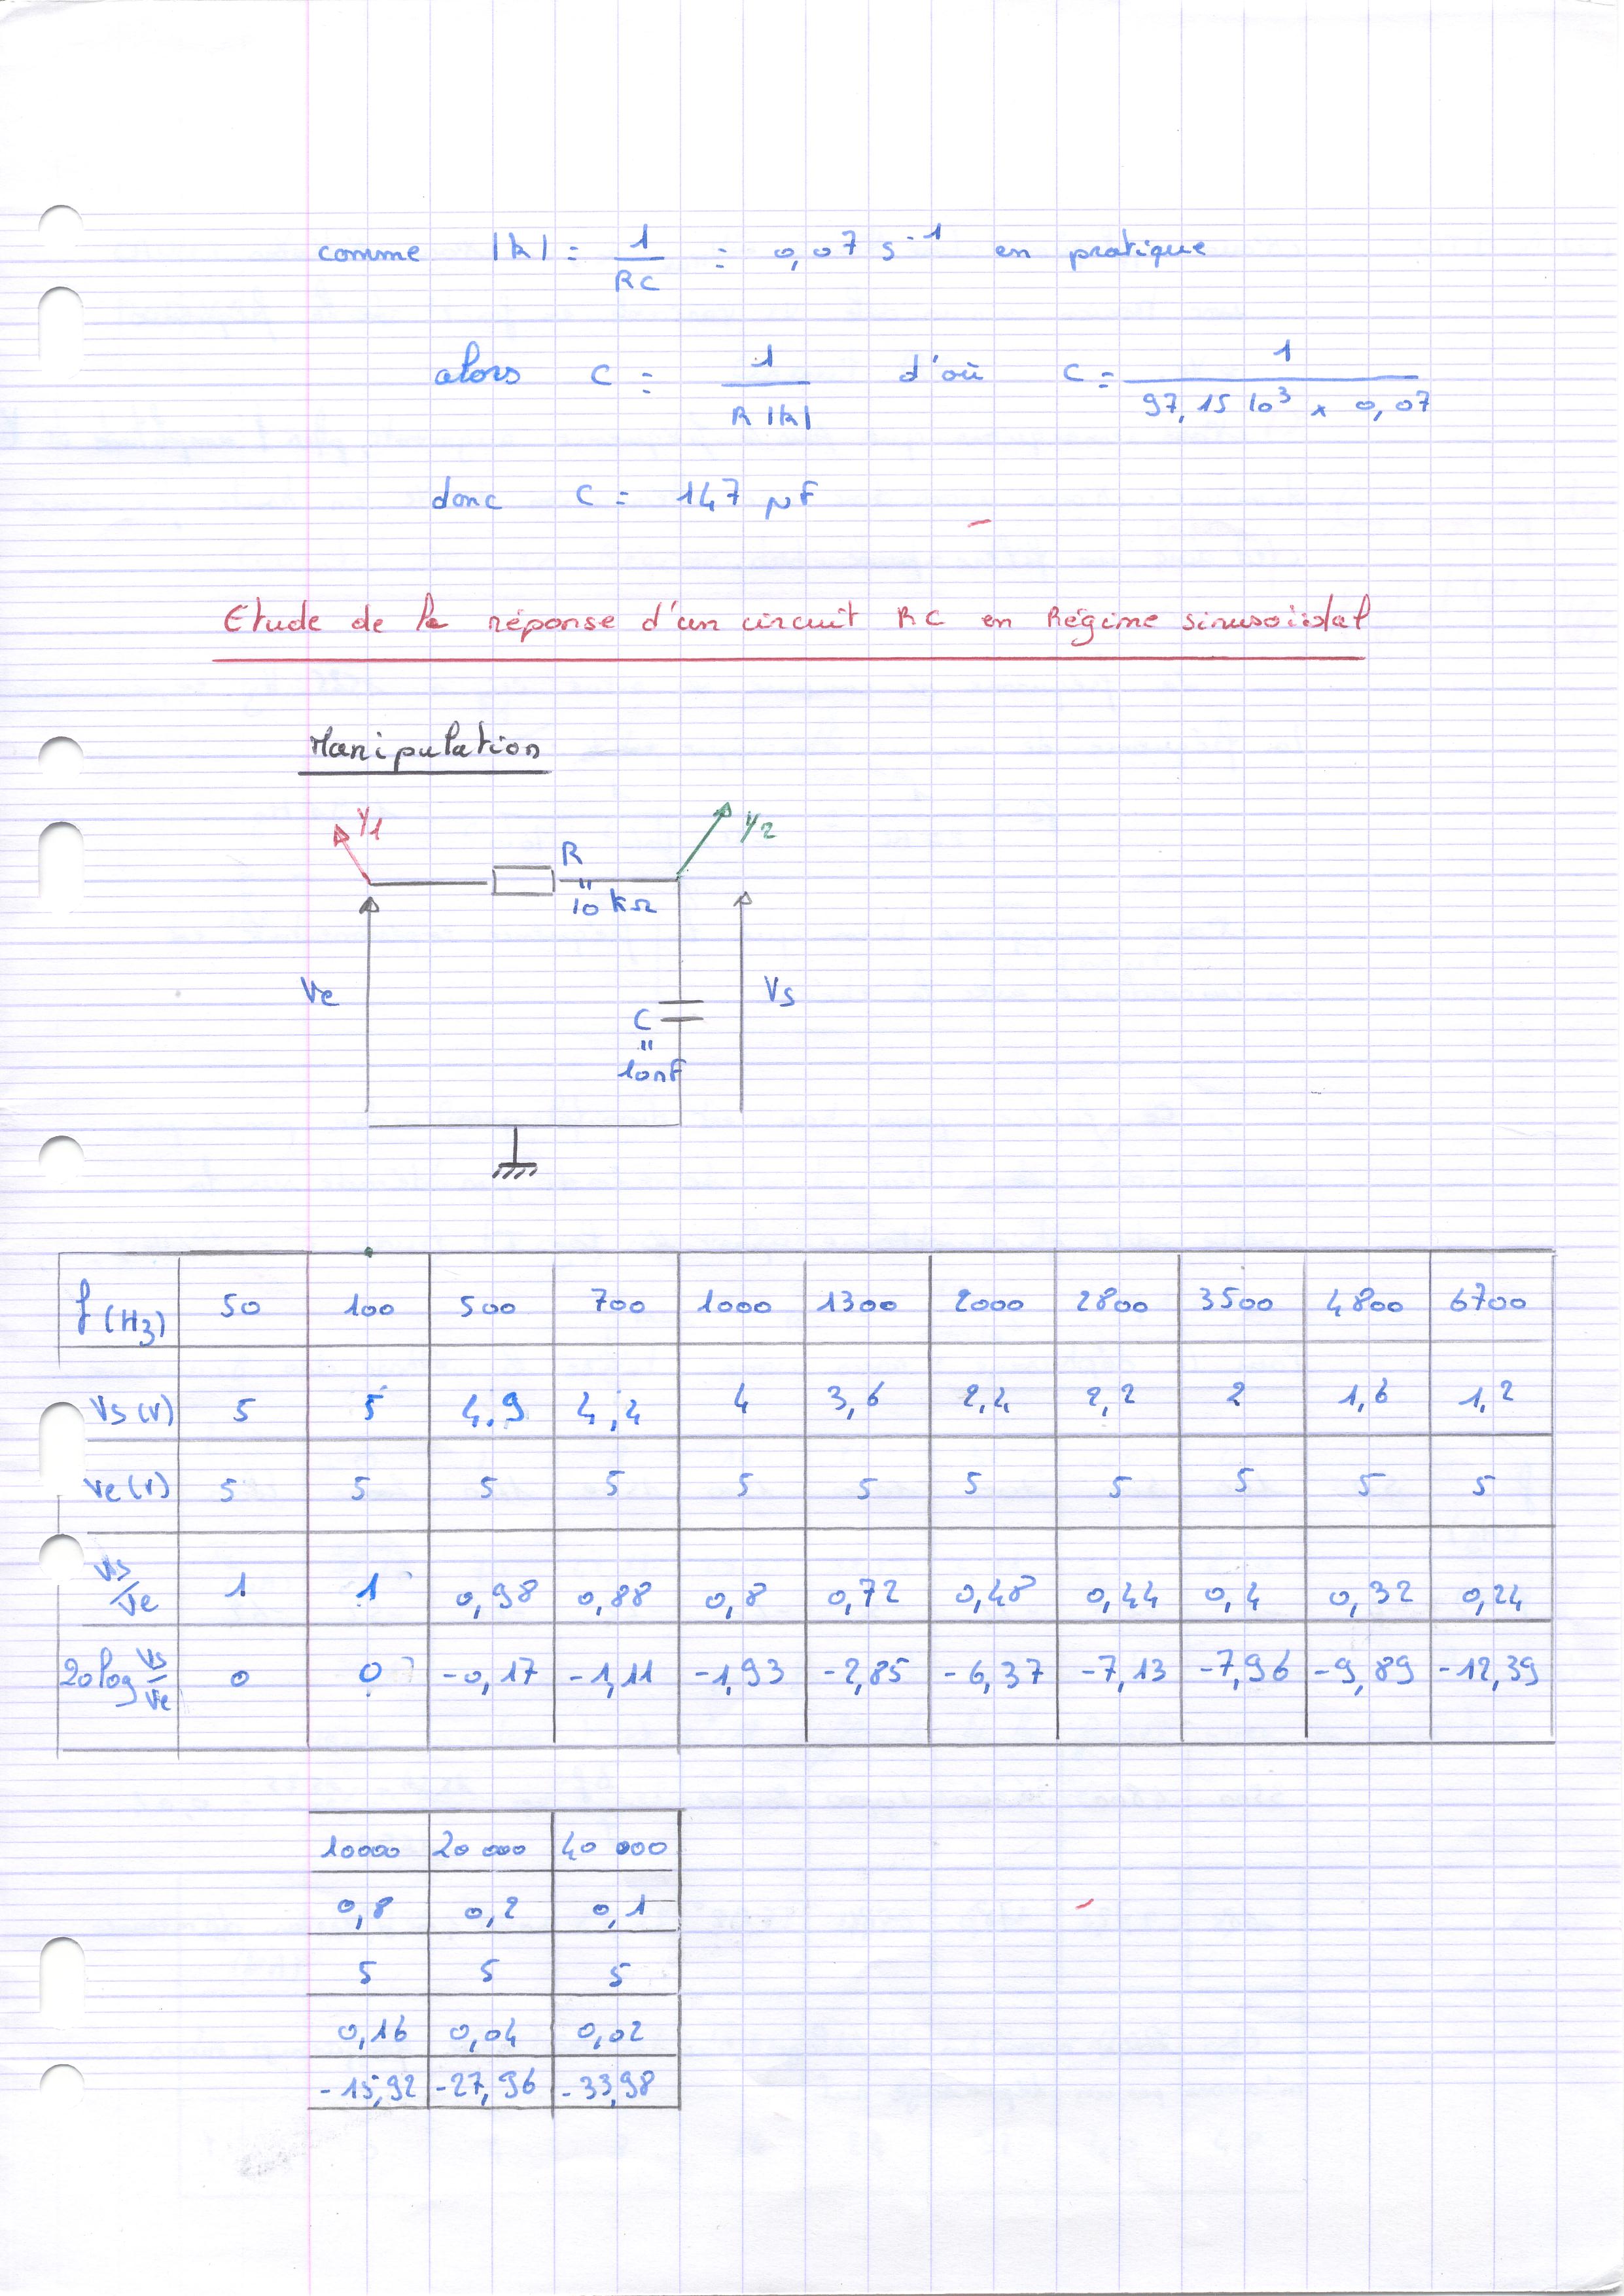 comme |k| = 1/RC = 0,07 s⁻¹ en pratique
alors C = 1/R|k| d'où C = 1/97,15 10³ x 0,07
donc C = 147 µF
Etude de la réponse d'un circuit RC en Régime sinusoïdal
Manipulation
Y1 Y2
R
"
10 kΩ
Ve Vs
C
"
10nF
f(Hz) 50 100 500 700 1000 1300 2000 2800 3500 4800 6700
Vs(V) 5 5 4.9 4,4 4 3,6 2,4 2,2 2 1,6 1,2
Ve(V) 5 5 5 5 5 5 5 5 5 5 5
Vs/Ve 1 1 0,98 0,88 0,8 0,72 0,48 0,44 0,4 0,32 0,24
20log Vs/Ve 0 0 -0,17 -1,11 -1,93 -2,85 -6,37 -7,13 -7,96 -9,89 -12,39
10000 20 000 40 000
0,8 0,2 0,1
5 5 5
0,16 0,04 0,02
-15,92 -27,96 -33,98